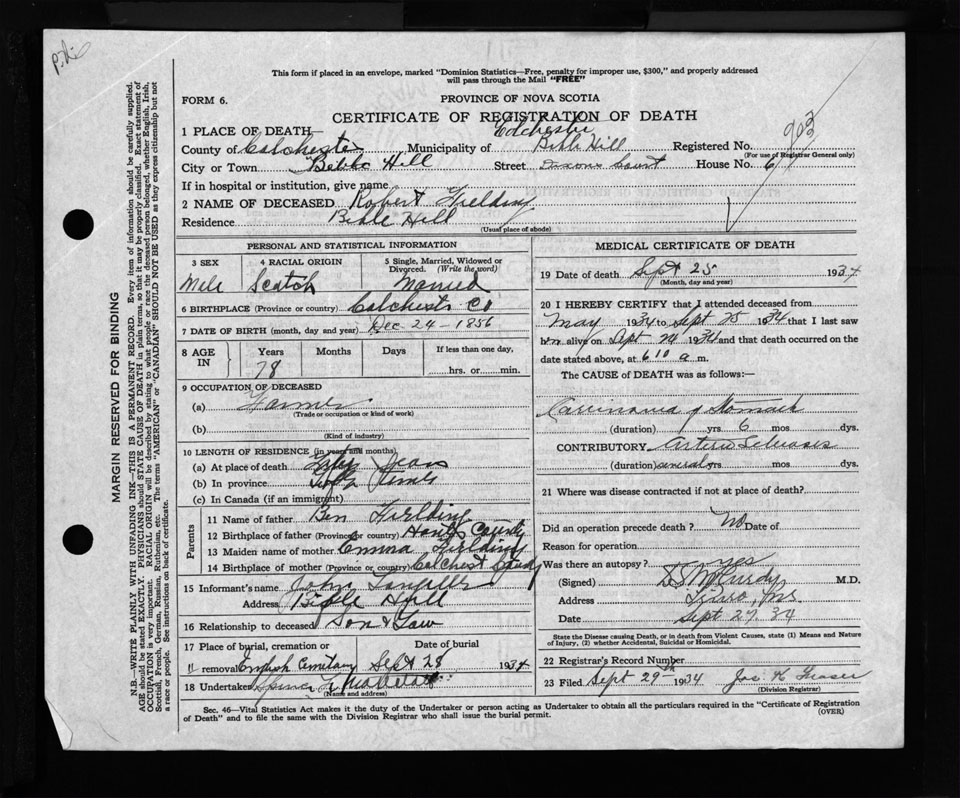 This form if placed in an envelope, marked "Dominion Statistics—Free, penalty for improper use, $300," and properly addressed
will pass through the Mail "FREE"
FORM 6.
PROVINCE OF NOVA SCOTIA
CERTIFICATE OF REGISTRATION OF DEATH
903
1 PLACE OF DEATH— Colchester
County of Colchester Municipality of Bible Hill Registered No.
(For use of Registrar General only)
City or Town Bible Hill Street Court House No. 6
If in hospital or institution, give name
2 NAME OF DECEASED Robert Fielding
Residence Bible Hill
(Usual place of abode)
PERSONAL AND STATISTICAL INFORMATION
3 SEX 4 RACIAL ORIGIN 5 Single, Married, Widowed or Divorced. (Write the word)
Male Scotch Married
6 BIRTHPLACE (Province or country) Colchester Co
7 DATE OF BIRTH (month, day and year) Dec 24-1856
8 AGE IN Years Months Days If less than one day,
78 hrs. or min.
9 OCCUPATION OF DECEASED
(a) Farmer
(Trade or occupation or kind of work)
(b)
(Kind of industry)
10 LENGTH OF RESIDENCE (in years and months)
(a) At place of death Years
(b) In province
(c) In Canada (if an immigrant)
Parents
11 Name of father Ben Fielding
12 Birthplace of father (Province or country) Hants County
13 Maiden name of mother Emma Fielding
14 Birthplace of mother (Province or country) Colchest County
15 Informant's name John
Address Bible Hill
16 Relationship to deceased Son & Law
17 Place of burial, cremation or Date of burial
removal Cemitary Sept 28 1934
18 Undertaker
(Name and address)
MEDICAL CERTIFICATE OF DEATH
19 Date of death Sept 25 1934
(Month, day and year)
20 I HEREBY CERTIFY that I attended deceased from
May 1934 to Sept 25 1934 that I last saw
him alive on Sept 24 1934 and that death occurred on the
date stated above, at 6 10 a m.
The CAUSE of DEATH was as follows:—
Carcinoma of Stomach
(duration) yrs 6 mos dys.
CONTRIBUTORY Arterio Sclerosis
(duration) several yrs mos dys.
21 Where was disease contracted if not at place of death?
Did an operation precede death? No Date of
Reason for operation
Was there an autopsy?
(Signed) D S McCurdy M.D.
Address Truro, N.S.
Date Sept 27. 34
State the Disease causing Death, or in death from Violent Causes, state (1) Means and Nature
of Injury, (2) whether Accidental, Suicidal or Homicidal.
22 Registrar's Record Number
23 Filed Sept 29th 1934 Jas. K Fraser
(Division Registrar)
Sec. 46—Vital Statistics Act makes it the duty of the Undertaker or person acting as Undertaker to obtain all the particulars required in the "Certificate of Registration
of Death" and to file the same with the Division Registrar who shall issue the burial permit.
(OVER)
MARGIN RESERVED FOR BINDING
N.B.—WRITE PLAINLY WITH UNFADING INK—THIS IS A PERMANENT RECORD. Every item of information should be carefully supplied.
AGE should be stated EXACTLY. PHYSICIANS should STATE CAUSE OF DEATH in plain terms, so that it may be properly classified. Exact statement of
OCCUPATION is very important. RACIAL ORIGIN will be described by stating to what people or race the deceased person belonged, whether English, Irish,
Scottish, French, German, Russian, Ruthenian, etc. The terms "AMERICAN" or "CANADIAN" SHOULD NOT BE USED as they express citizenship but not
a race or people. See instructions on back of certificate.